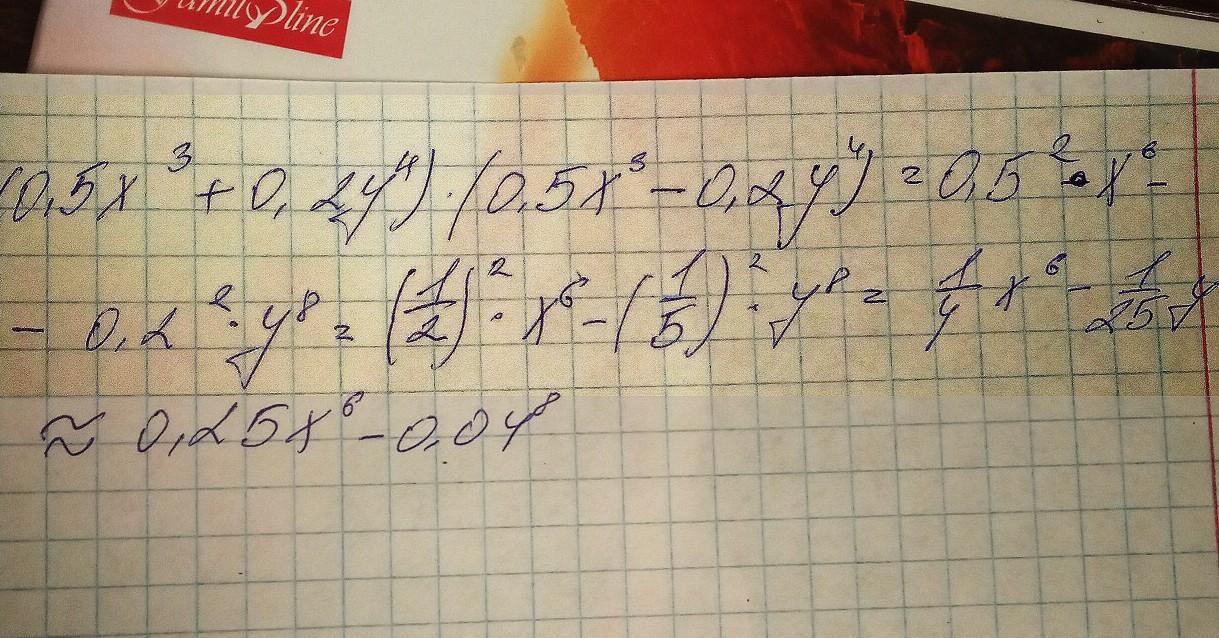 Famil line
(0,5x³+0,2y⁴)·(0,5x³-0,2y⁴)=0,5²·x⁶-
- 0,2²·y⁸=(1/2)²·x⁶-(1/5)²·y⁸=1/4x⁶-1/25y
≈ 0,25x⁶-0,04⁸